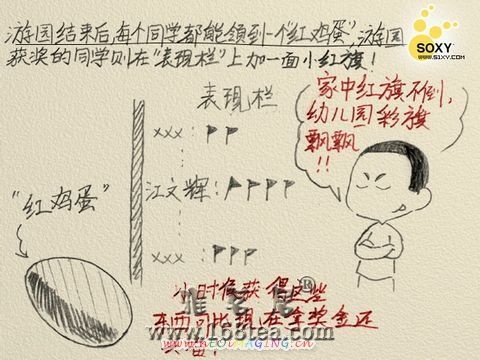 游园结束后每个同学都能领到一个"红鸡蛋",游园
获奖的同学则在"表现栏"上加一面小红旗!
SOXY
WWW.SIXY.COM
表现栏
xxx:
江文辉:
xxx:
"红鸡蛋"
家中红旗不倒,
幼儿园彩旗
飘飘
!!
小时候获得这些
东西可比现在拿奖金还
www.168tea.com